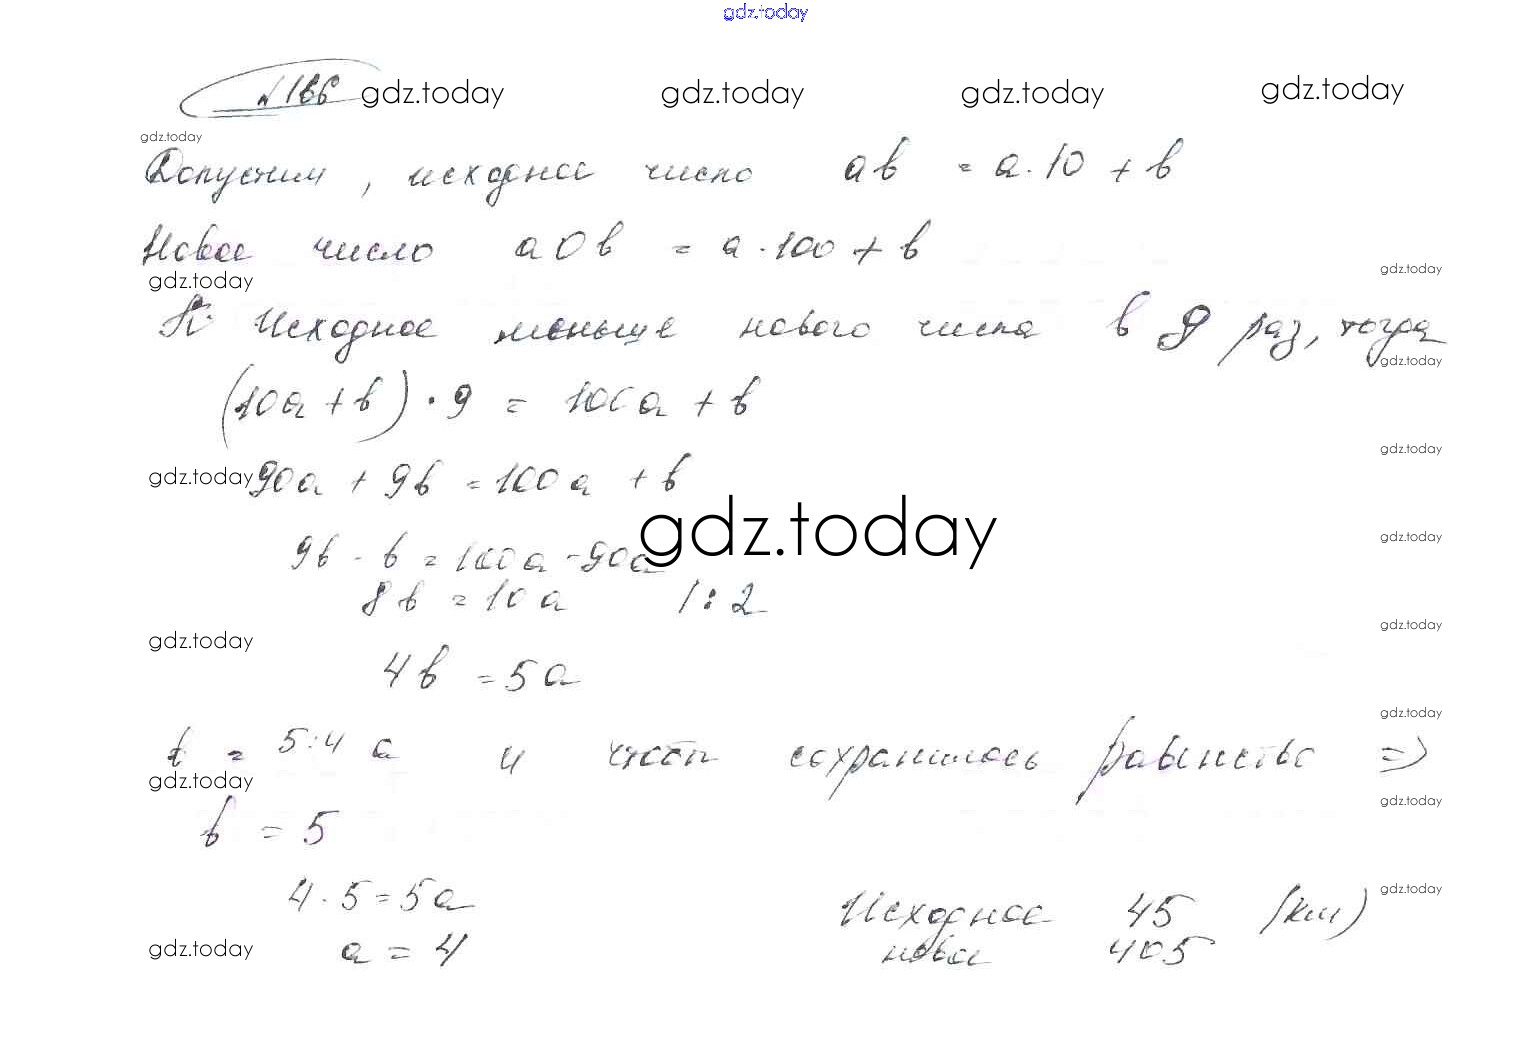 gdz.today
№166 gdz.today gdz.today gdz.today gdz.today
gdz.today
Допустим, исходное число ab = a·10 + b
Новое число a0b = a·100 + b
gdz.today gdz.today
Исходное меньше нового числа в 9 раз, тогда
gdz.today
(10a + b)·9 = 100a + b
gdz.today
gdz.today 90a + 9b = 100a + b
gdz.today
9b - b = 100a - 90a
gdz.today
8b = 10a /:2
gdz.today
gdz.today
4b = 5a
gdz.today
b = 5:4 a и чтобы сохранилось равенство =>
gdz.today
gdz.today
b = 5
4·5 = 5a Исходное 45 (км)
gdz.today
gdz.today a = 4 новое 405